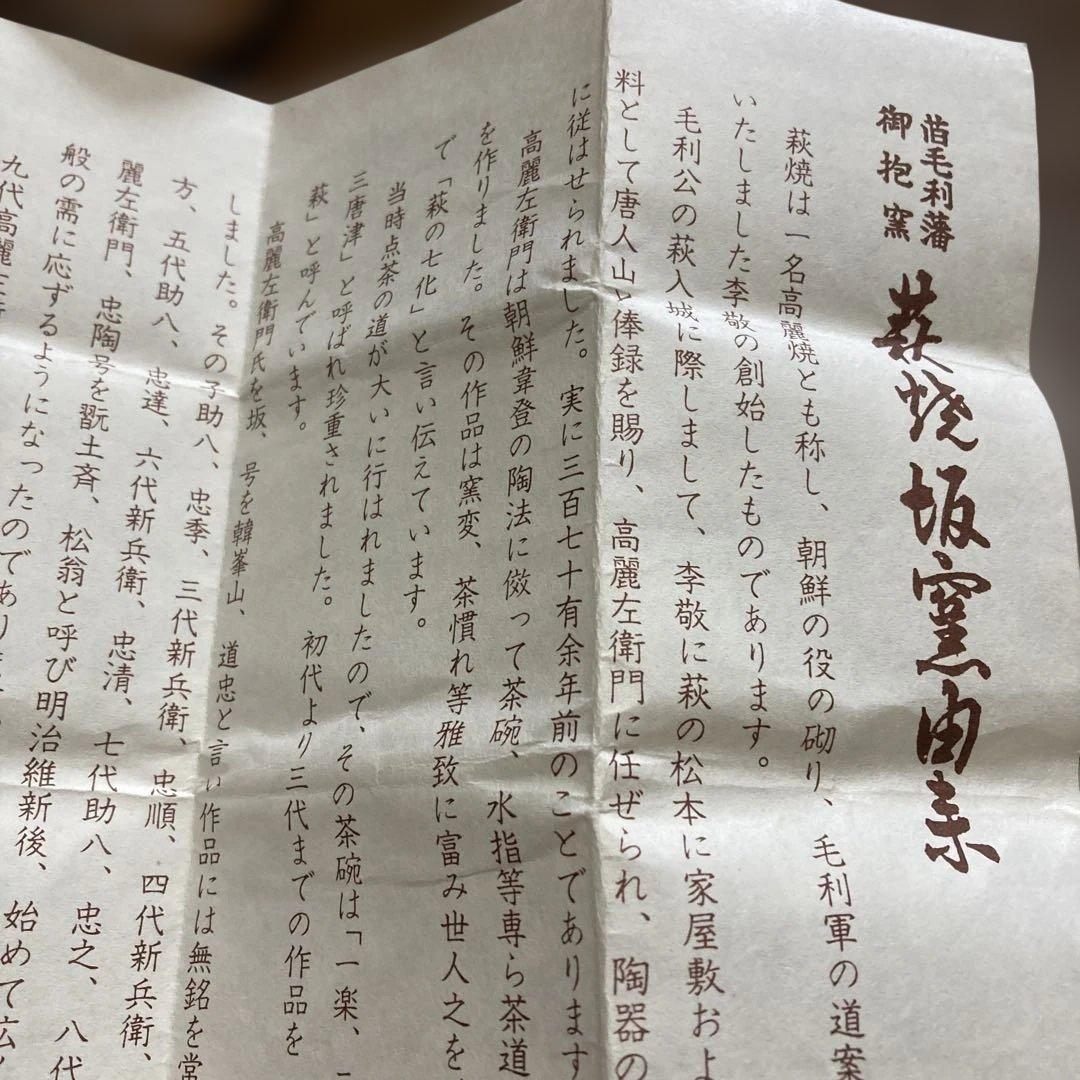 旧毛利藩
御抱窯
萩焼坂窯由来
萩焼は一名高麗焼とも称し、朝鮮の役の砌り、毛利軍の道案
いたしました李敬の創始したものであります。
毛利公の萩入城に際しまして、李敬に萩の松本に家屋敷およ
料として唐人山と俸録を賜り、高麗左衛門に任ぜられ、陶器の
に従はせられました。実に三百七十有余年前のことであります
高麗左衛門は朝鮮韋登の陶法に倣って茶碗、水指等専ら茶道
を作りました。その作品は窯変、茶慣れ等雅致に富み世人之を
で「萩の七化」と言い伝えています。
当時点茶の道が大いに行はれましたので、その茶碗は「一楽、
三唐津」と呼ばれ珍重されました。初代より三代までの作品を
萩」と呼んでいます。
高麗左衛門氏を坂、号を韓峯山、道忠と言い作品には無銘を常
しました。その子助八、忠季、三代新兵衛、忠順、四代新兵衛、
方、五代助八、忠達、六代新兵衛、忠清、七代助八、忠之、八代
麗左衛門、忠陶号を翫土斉、松翁と呼び明治維新後、始めて広く
般の需に応ずるようになったのであり
九代高麗左